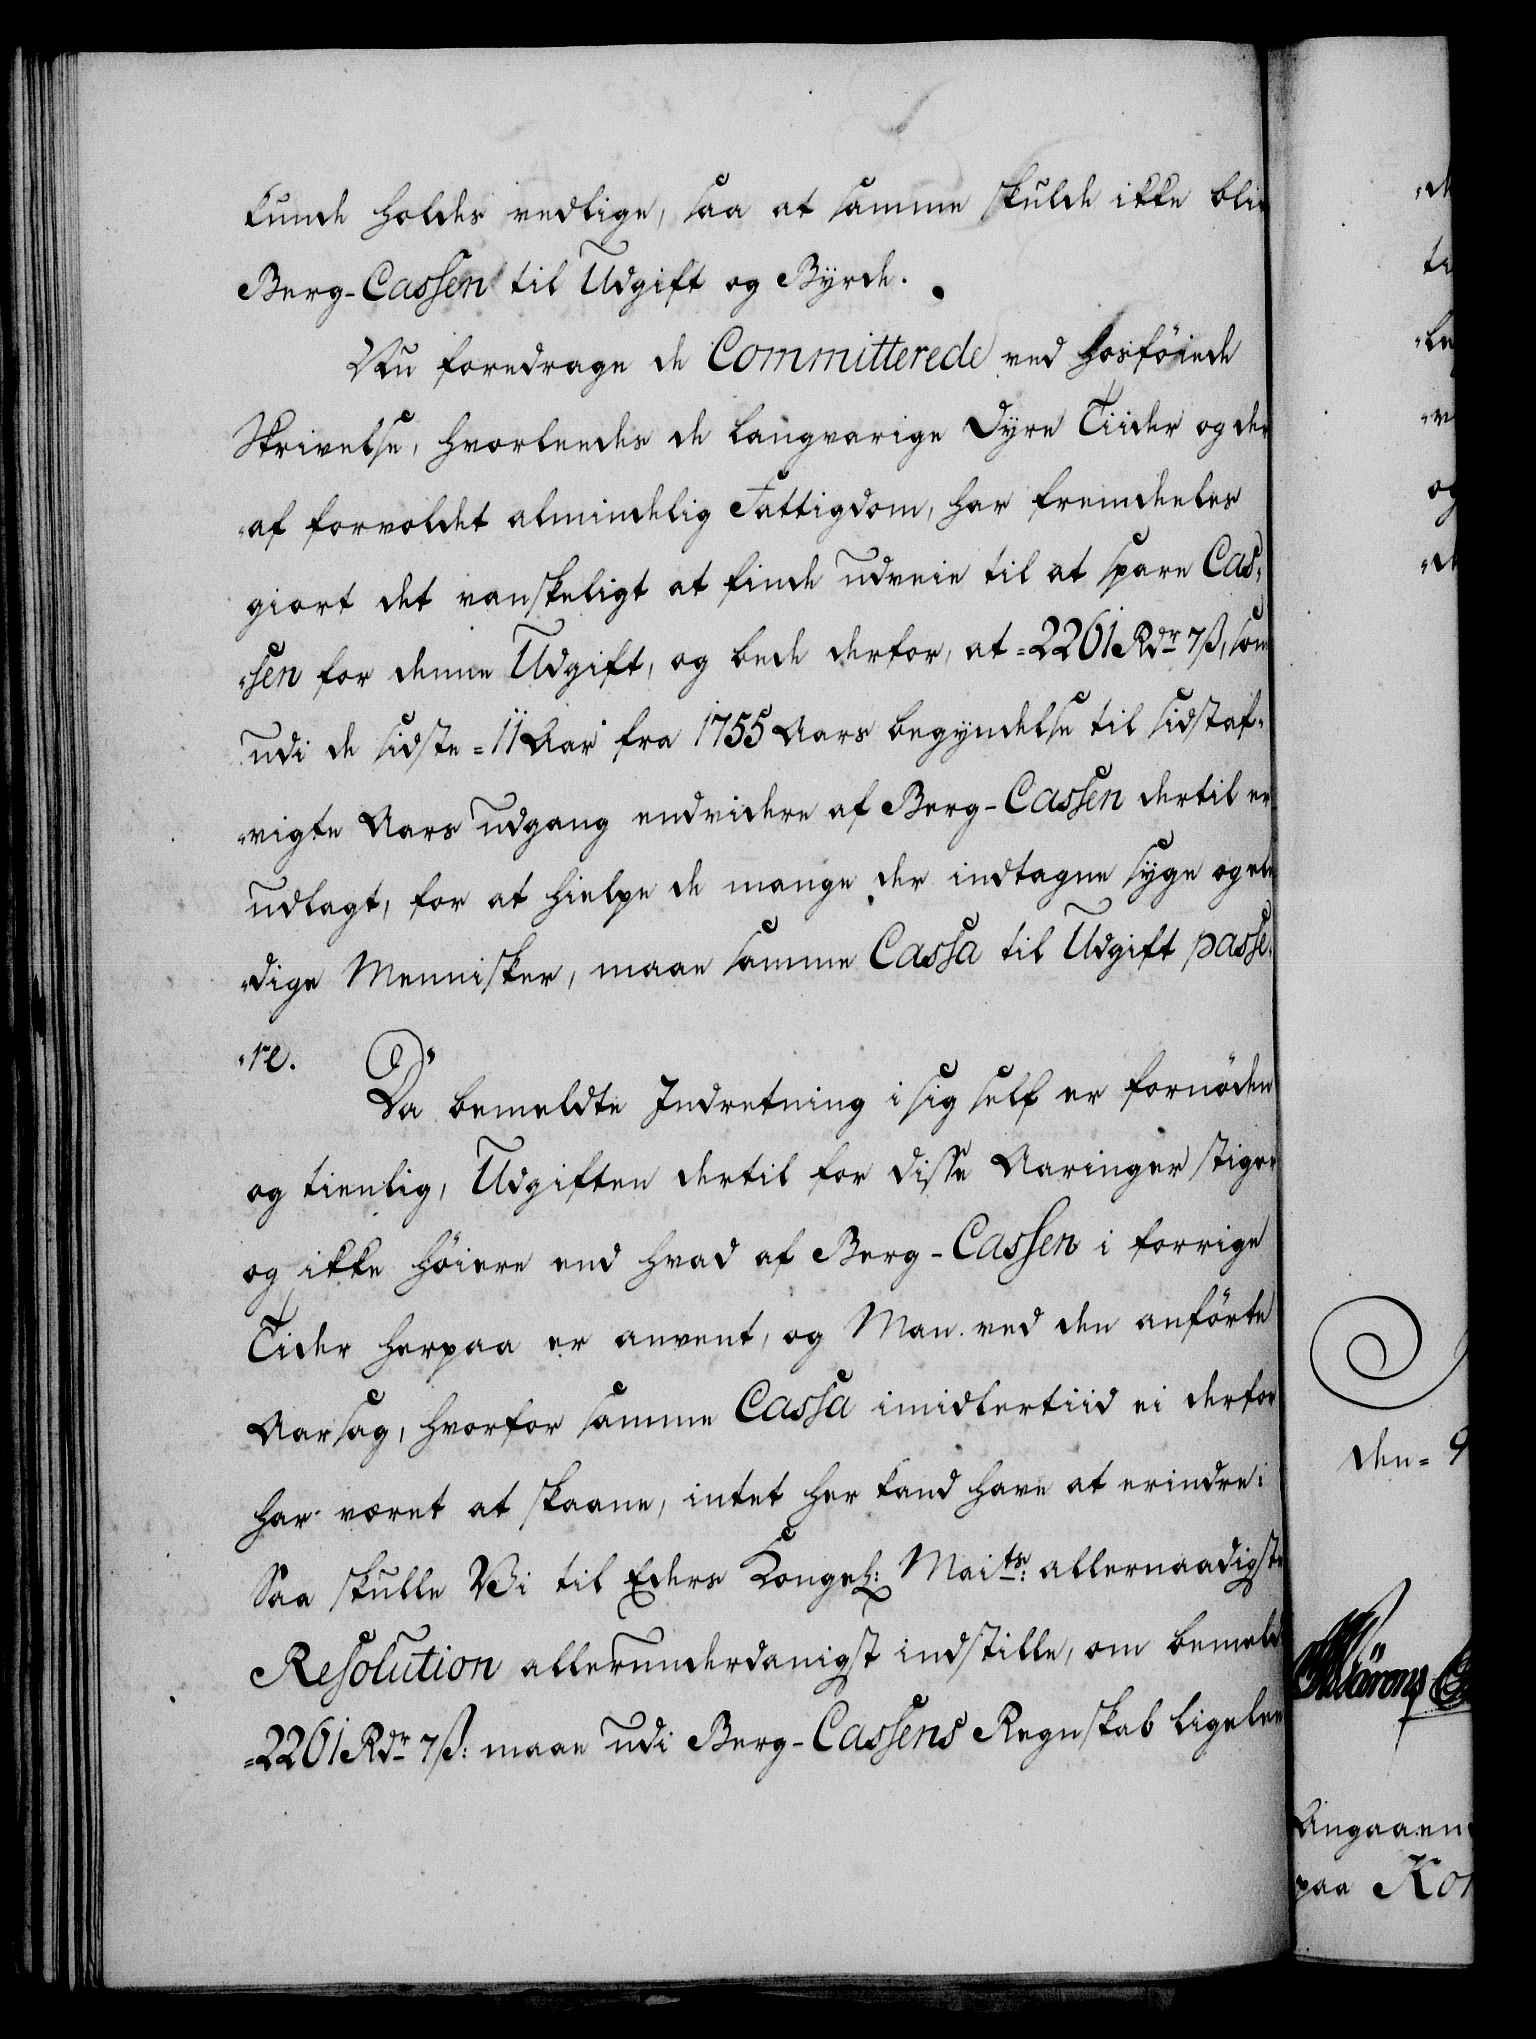 kunde holdes vedlige, saa at samme skulde ikke bliv
Berg-Cassen til Udgift og Byrde.
Nu foredrage de Committerede ved hosföiede
Skrivelse, hvorleedes de langvarige Dyre Tiider og der
af forvoldet almindelig Fattigdom, har fremdeeles
giort det vanskeligt at finde udveie til at spare Cas-
sen for denne Udgift, og bede derfor, at =2261 Rdr 7ß, som
udi de sidste =11 Aar fra 1755 Aars begyndelse til sidstaf-
vigte Aars udgang endvidere af Berg-Cassen dertil er
udlagt, for at hielpe de mange der indtagne syge og ele
dige Mennisker, maae samme Cassa til Udgift passe-
re.
Da bemeldte Indretning i sig self er fornöden
og tienlig, Udgiften dertil for disse Aaringer stiger
og ikke höiere end hvad af Berg-Cassen i forrige
Tider herpaa er anvent, og Man ved den anförte
Aarsag, hvorfor samme Cassa imidlertiid ei derfor
har været at skaane, intet her kand have at erindre:
Saa skulle Vi til Eders Kongel: Maits: allernaadigste
Resolution allerunderdanigst indstille, om bemeld
=2261 Rdr 7ß: maae udi Berg-Cassens Regnskab ligelee
den= 9
Angaaen
paa Kon